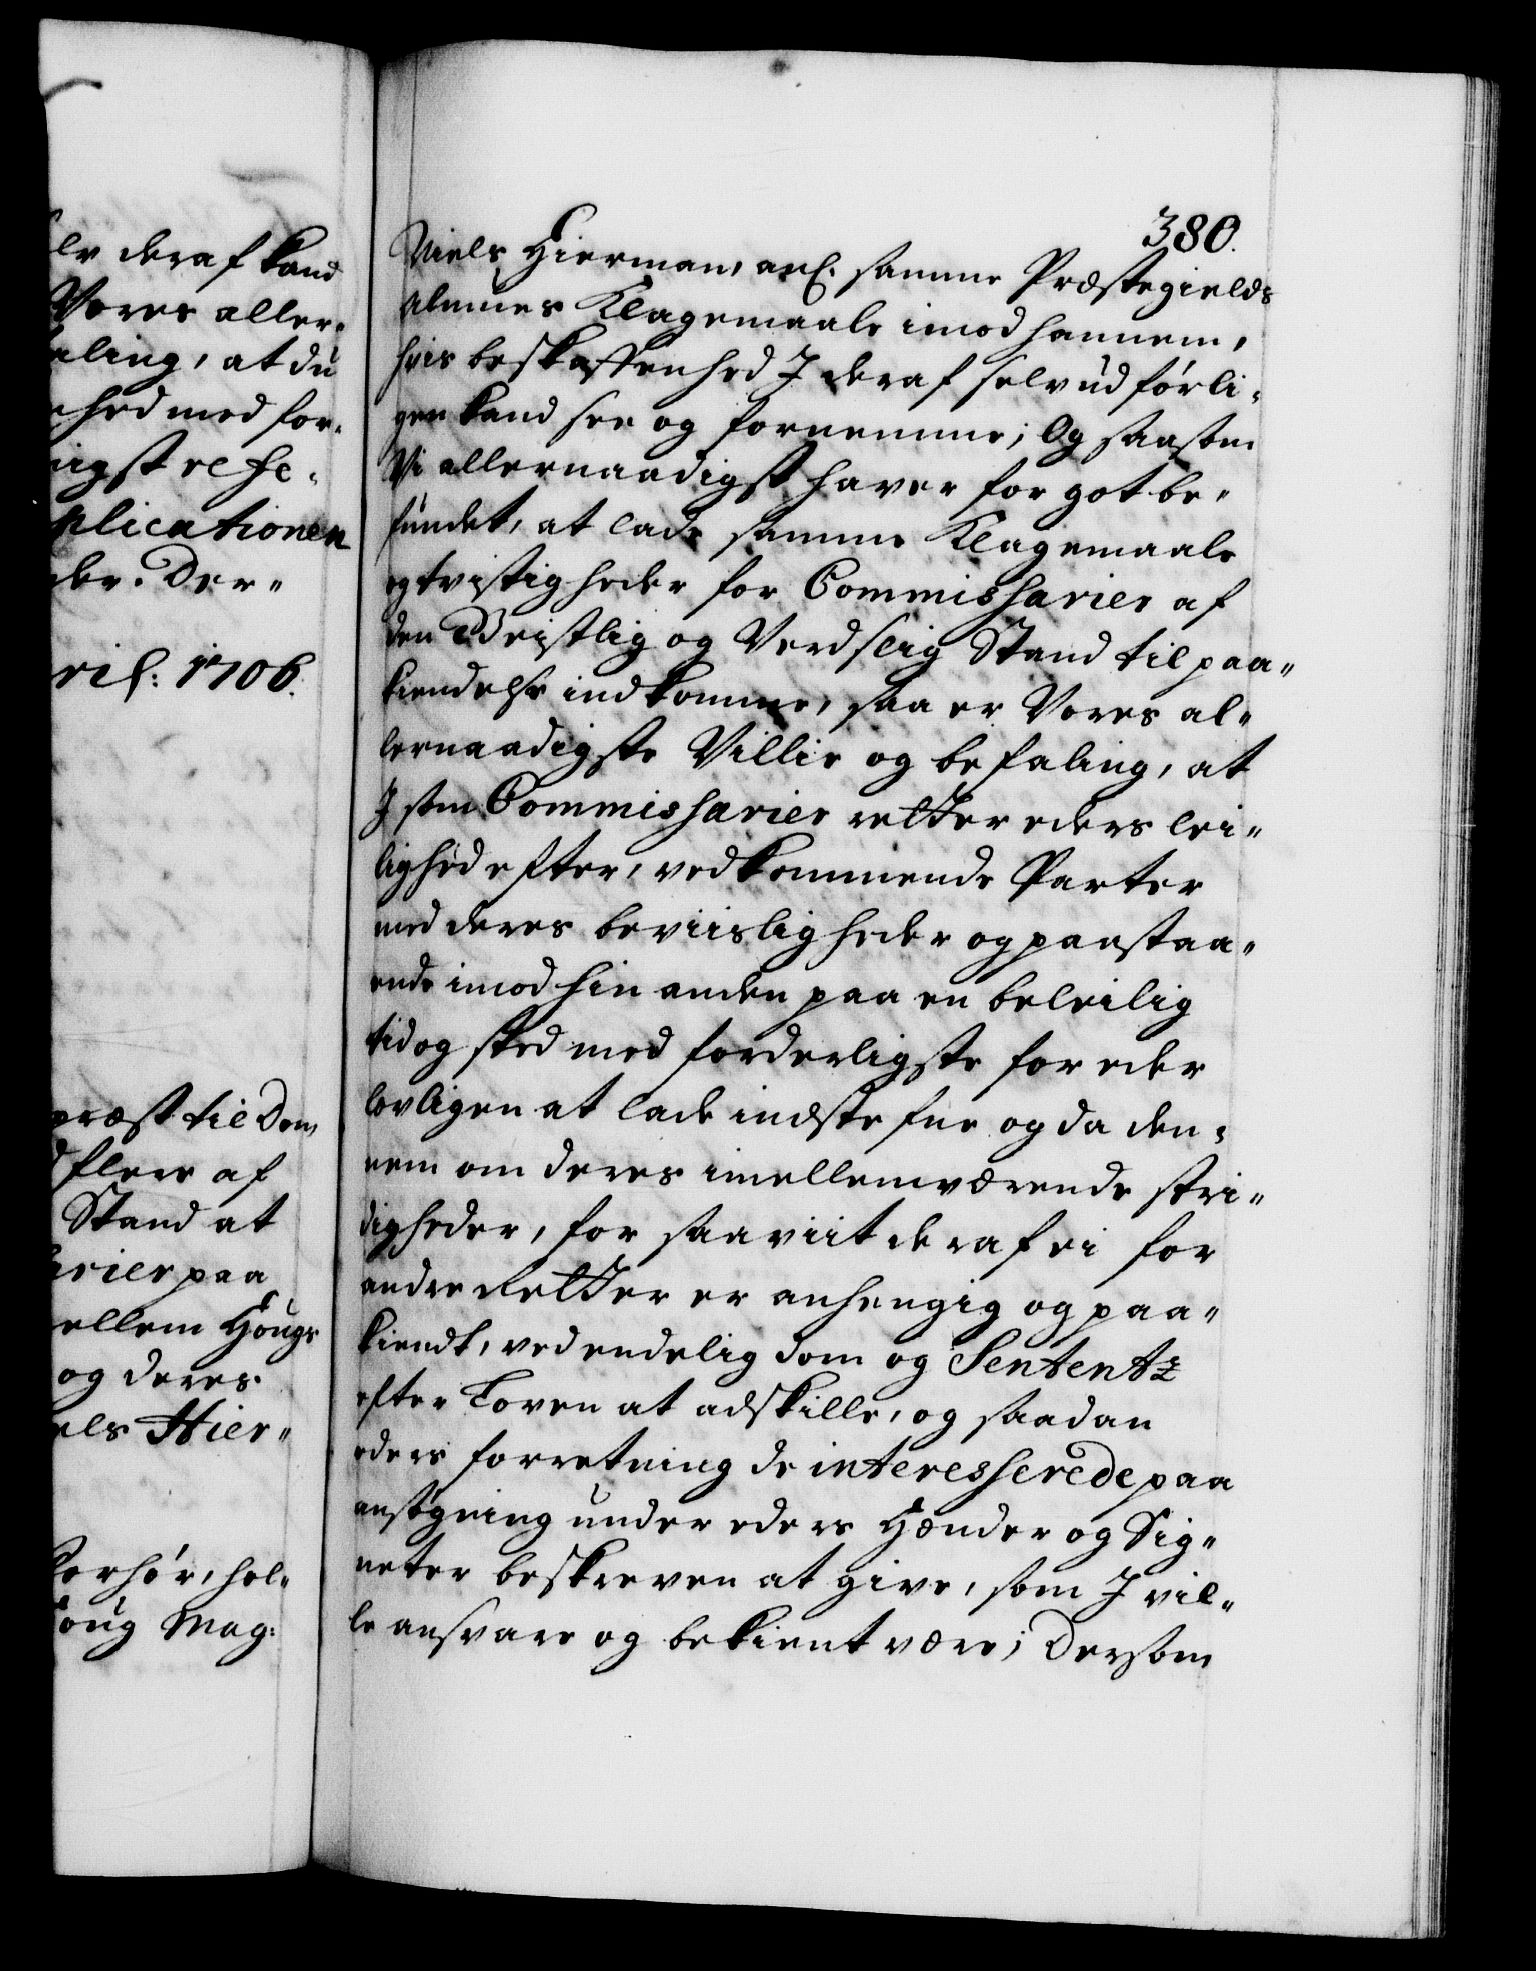 elv deraf kand
Vores aller-
aling, at du
hed med for-
nigst refe-
plicationen
der. Der-
ril: 1706.
præst til Dom
fleere af
Stand at
arier paa
ellem Hougs
og deres
els Hier-
Forhør, hol-
Houg Mag:
380.
Niels Hierman, anl. samme Præstegields
Almues Klagemaale imod hannem,
hvis beskaffenhed I deraf selv udførli-
gen kand see og fornemme; Og saasom
Vi allernaadigst haver for got be-
fundet, at lade samme Klagemaale
og tvistigheder for Commissarier af
den Geistlig og Verdslig Stand til paa-
kiendelse indkomme, saa er Vores al-
lernaadigste Villie og befaling, at
I som Commissarier retter eders lei-
lighed efter, vedkommende Parter
med deres beviisligheder og paastaa-
ende imod hin anden paa en beleilig
tid og sted med forderligste for eder
lovligen at lade indstefne og da den-
nem om deres imellemværende stri-
digheder, for saaviit deraf ei for
andre Retter er anhengig og paa-
kiendt, ved endelig dom og Sententz
efter Loven at adskille, og saadan
eders forretning de interesserede paa
ansøgning under eders Hænder og Sig-
neter beskreven at give, som I vil-
le ansvare og bekient være; Dersom